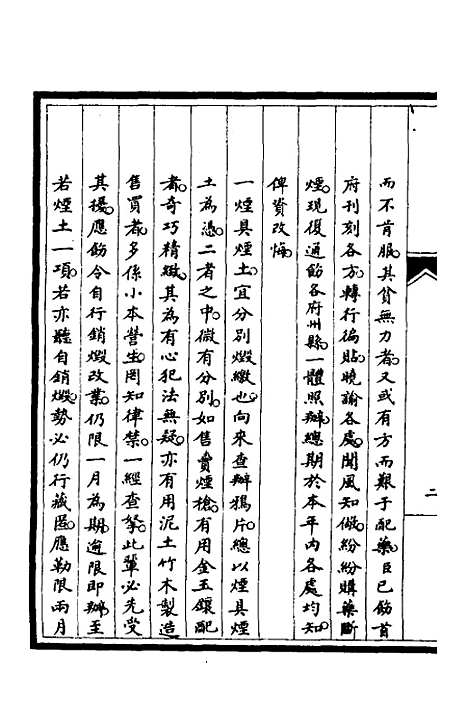 而不肯服其貧無力者又或有方而艱于配藥臣已飭首
府刊刻各方轉行徧貼曉諭各處聞風知儆紛紛購藥斷
煙現復通飭各府州縣一體照辦總期於本年內各處均知
俾資改悔
一煙具煙土宜分別燬繳也向來查辦鴉片總以煙具煙
土為憑二者之中微有分別如售賣煙槍有用金玉鑲配
者奇巧精緻其為有心犯法無疑亦有用泥土竹木製造
售買者多係小本營生罔知律禁一經查拏此輩必先受
其擾應飭令自行銷燬改業仍限一月為期逾限即辦至
若煙土一項若亦聽自銷燬勢必仍行藏匿應勒限兩月
二